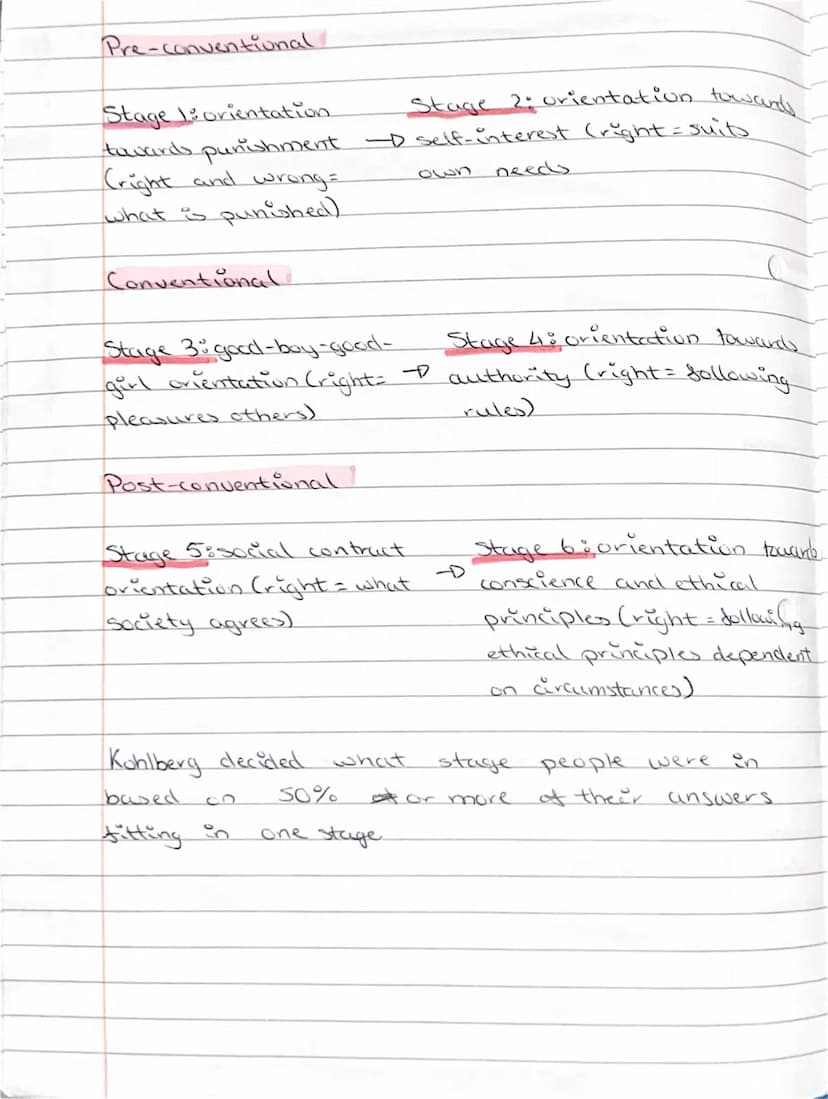 Pre-conventional
Stage 1: orientation
towards punishment →
(right and wrong=
what is punished)
Stage 2: orientation towards
self-interest (right = suits
own needs
Conventional
Stage 3: good-boy-good-
girl orientation (right= →
pleasures others)
Stage 4: orientation towards
authority (right = following
rules)
Post-conventional
Stage 5: social contract
orientation (right = what →
society agrees)
Stage 6: orientation towards
conscience and ethical
principles (right = following
ethical principles dependent
on circumstances)
Kohlberg decided what stage people were in
based on 50% or more of their answers
fitting in one stage